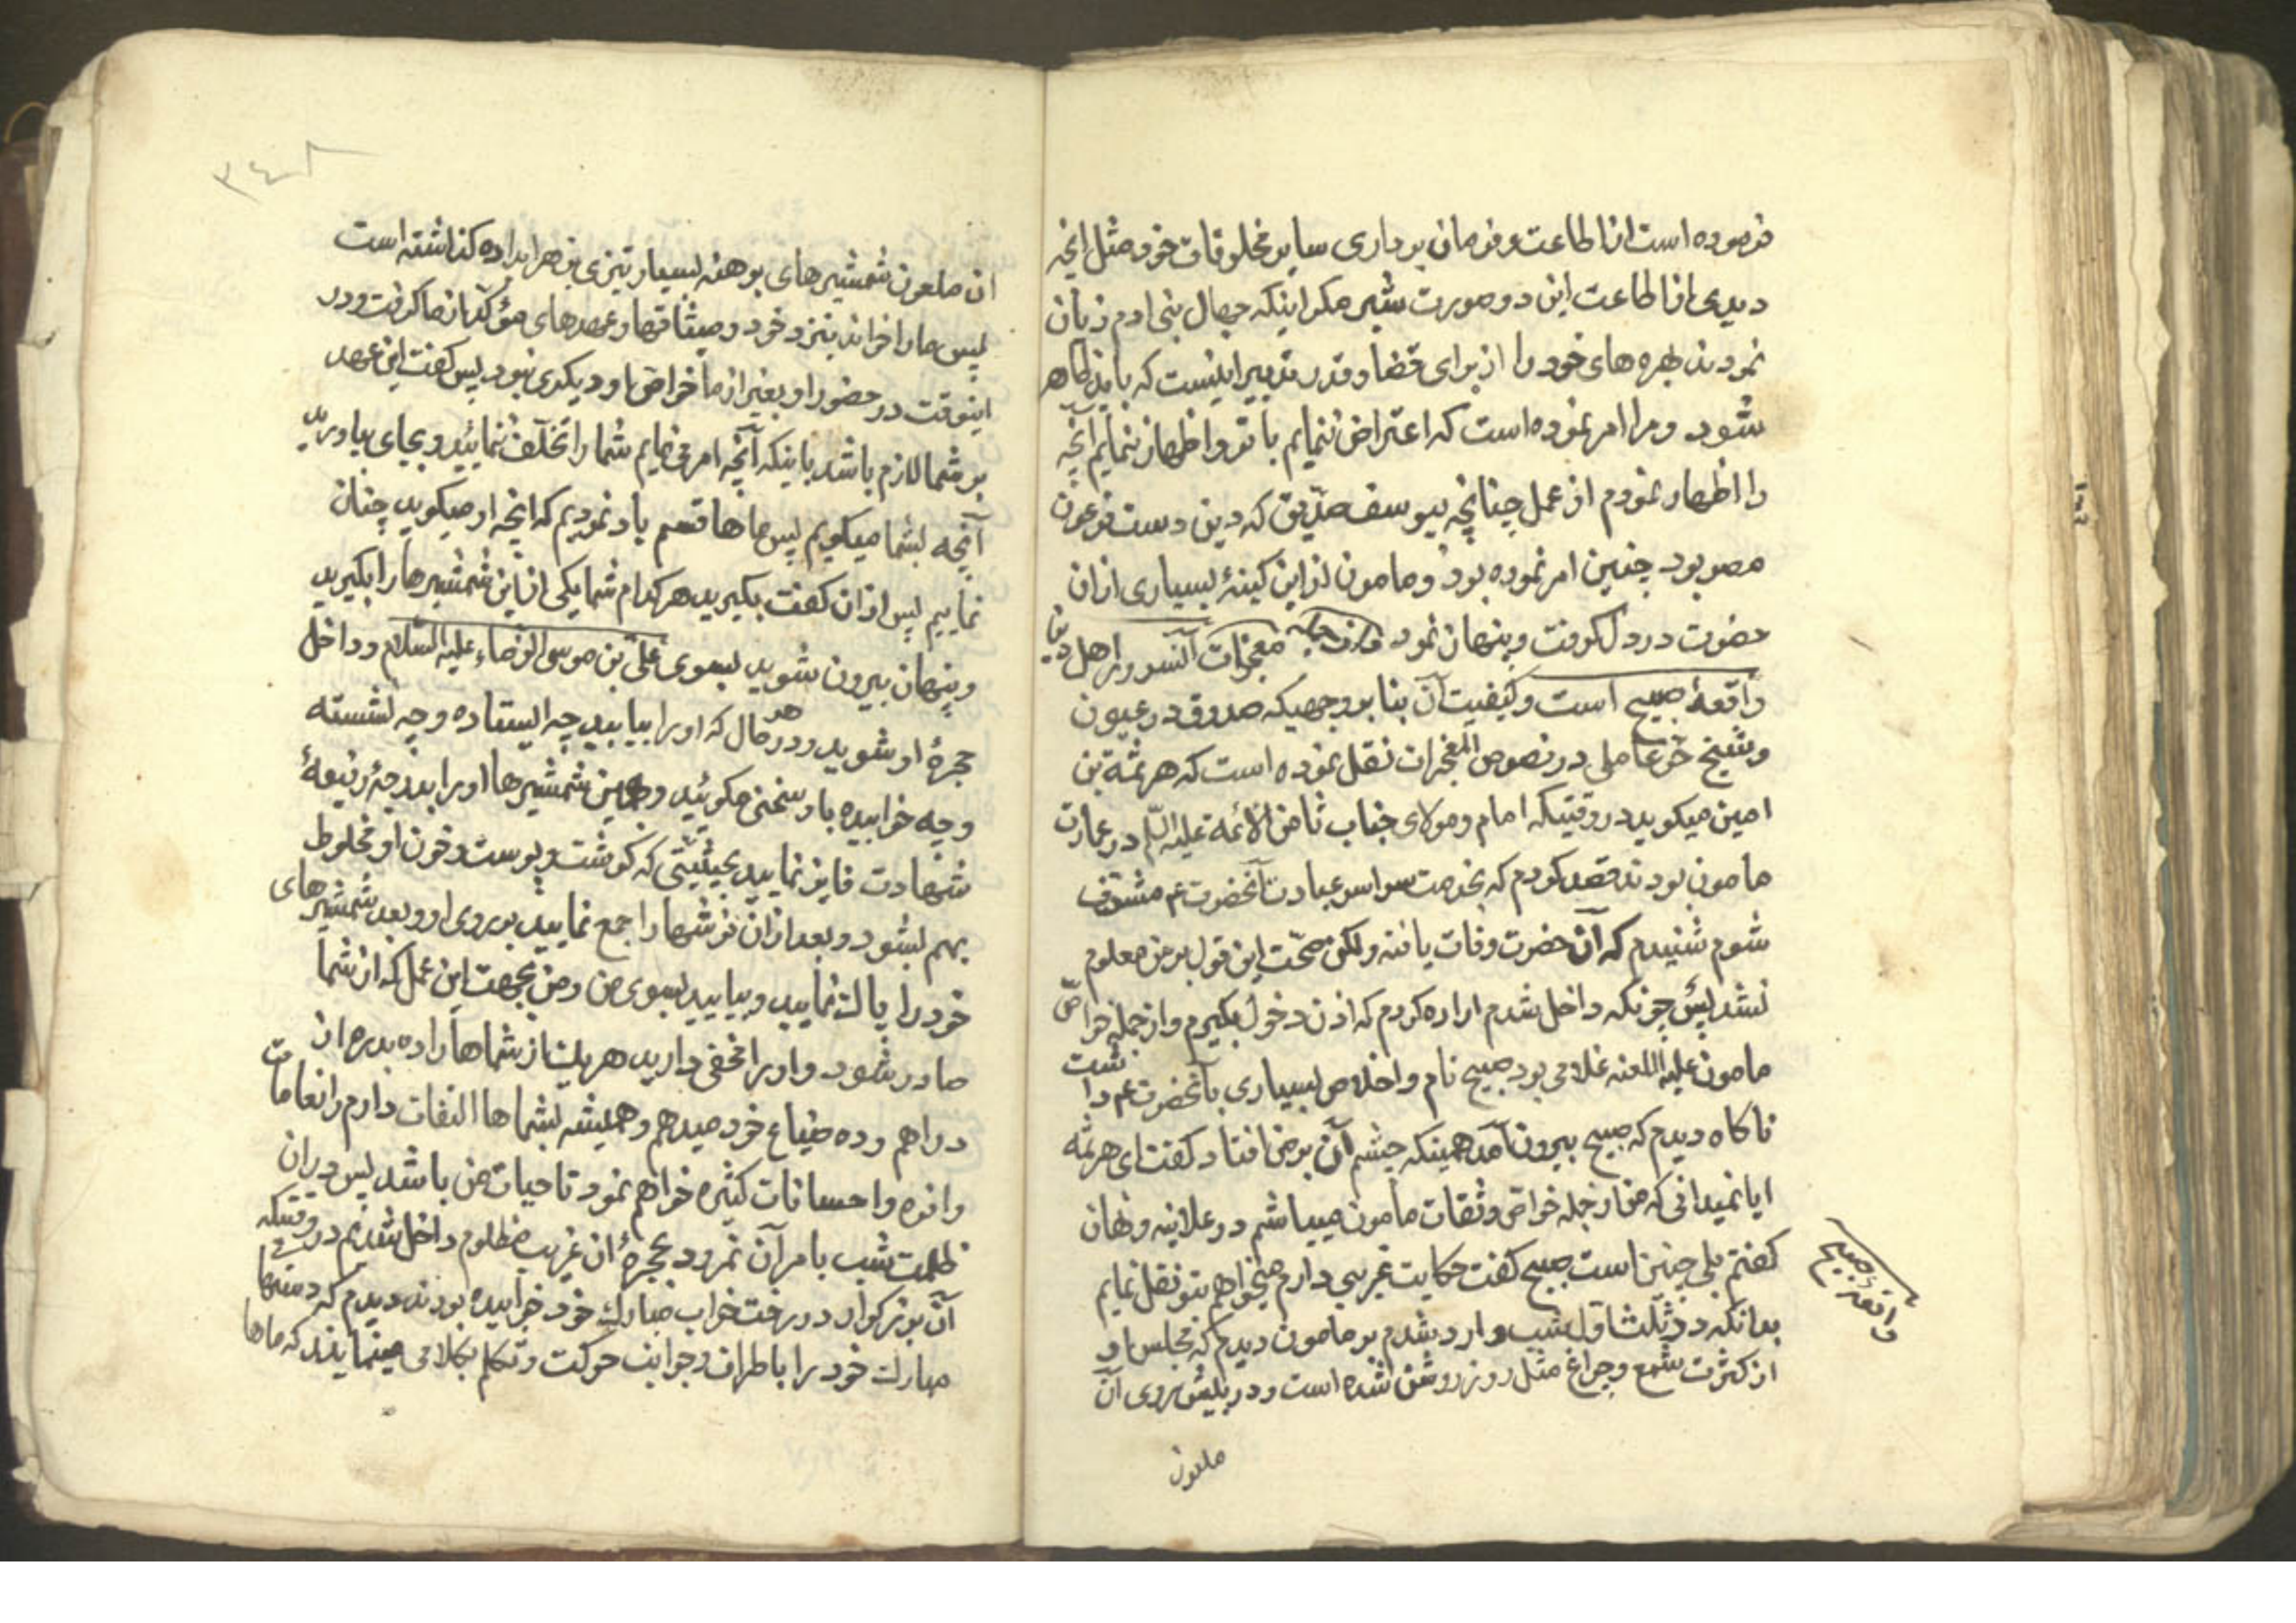 فرموده است از اطاعت و فرمان برداری سایر مخلوقات خود مثل آنچه
دیدی از اطاعت این دو صورت شیر مکر اینکه جهال بنی ادم زیان
نمودند بهره های خود را از برای قضا و قدر تدبیرایست که باید ظاهر
شود و مرا امر نموده است که اعتراض ننمایم با تو و اظهار ننمایم آنچه
را اظهار نمودم از عمل چنانچه بیوسف صدیق که درین دست فرعون
مصر بود چنین امر نموده بود و مامون از این کینهٔ بسیاری ازان
حضرت در دل کرفت و پنهان نمود و از جمله معجزات آنسرور اهل دنیا
واقعهٔ صبیح است و کیفیت آن بنا بر وجهیکه صدوق در عیون
و شیخ حر عاملی در نصوص المعجزات نقل نموده است که هرثمة بن
امین میکوید در وقتیکه امام و مولای جناب ثامن الائمه علیه السلام در عمارت
مامون بودند قصد کردم که بخدمت سراسر عبادت آنحضرت عم مشرف
شوم شنیدم که آن حضرت وفات یافته ولکن صحت این قول بر من معلوم
نشد پس چونکه داخل شدم اراده کردم که اذن دخول بکیرم و از جمله خواص
مامون علیه اللعنه غلامی بود صبیح نام و اخلاص بسیاری بآنحضرت عم داشت
ناکاه دیدم که صبیح بیرون آمد همینکه چشم آن بر من افتاد کفت ای هرثمه
ایا نمیدانی که من از جمله خواص و ثقات مامون میباشم در علانیه و نهان
کفتم بلی چنین است صبیح کفت حکایت غریبی دارم میخواهم بتو نقل نمایم
بدانکه در ثلث اول شب وارد شدم بر مامون دیدم که مجلس او
از کثرت شمع و چراغ مثل روز روشن شده است و در پیش روی آن
ملعون
واقعهٔ صبیح
ان ملعون شمشیرهای برهنه بسیار تیزی بزهر ابداده کذاشته است
پس ما را خواند بنزد خود و میثاقها و عهدهای مؤکد از ما کرفت و در
اینوقت در حضور او بغیر از ما خواص او دیکری نبود پس کفت این عهد
بر شما لازم باشد باینکه آنچه امر می نمایم شما را تخلف ننمایید و بجای بیاورید
آنچه بشما میکویم پس ماها قسم یاد نمودیم که انچه او میکوید چنان
نماییم پس ازان کفت بکیرید هر کدام شما یکی از این شمشیرها را بکیرید
و پنهان بیرون شوید بسوی علی بن موسی الرضاء علیه السلام و داخل
حجرهٔ او شوید و در هر حال که او را بیابید چه ایستاده و چه نشسته
و چه خوابیده با او سخنی مکوئید و بهمین شمشیرها او را بدرجهٔ رفیعهٔ
شهادت فایز نمایید بحیثیتی که کوشت و پوست و خون او مخلوط
بهم بشود و بعد ازان فرشها را جمع نمایید بر روی او و بعد شمشیرهای
خود را پاک نمایید و بیایید بسوی من و من بجهت این عمل که از شما
صادر شود و او را مخفی دارید هر یک از شماها را ده بدره از
دراهم و ده ضیاع خود میدهم و همیشه بشماها التفات دارم و انعامات
وافره و احسانات کثیره خواهم نمود تا حیات من باشد پس دران
ظلمت شب بامر آن نمرود بحجرهٔ ان غریب مظلوم داخل شدیم در وقتیکه
آن بزرکوار در رخت خواب مبارک خود خوابیده بودند دیدم که دستهای
مبارک خود را باطراف و جوانب حرکت و تکلم بکلامی مینمایند که ماها